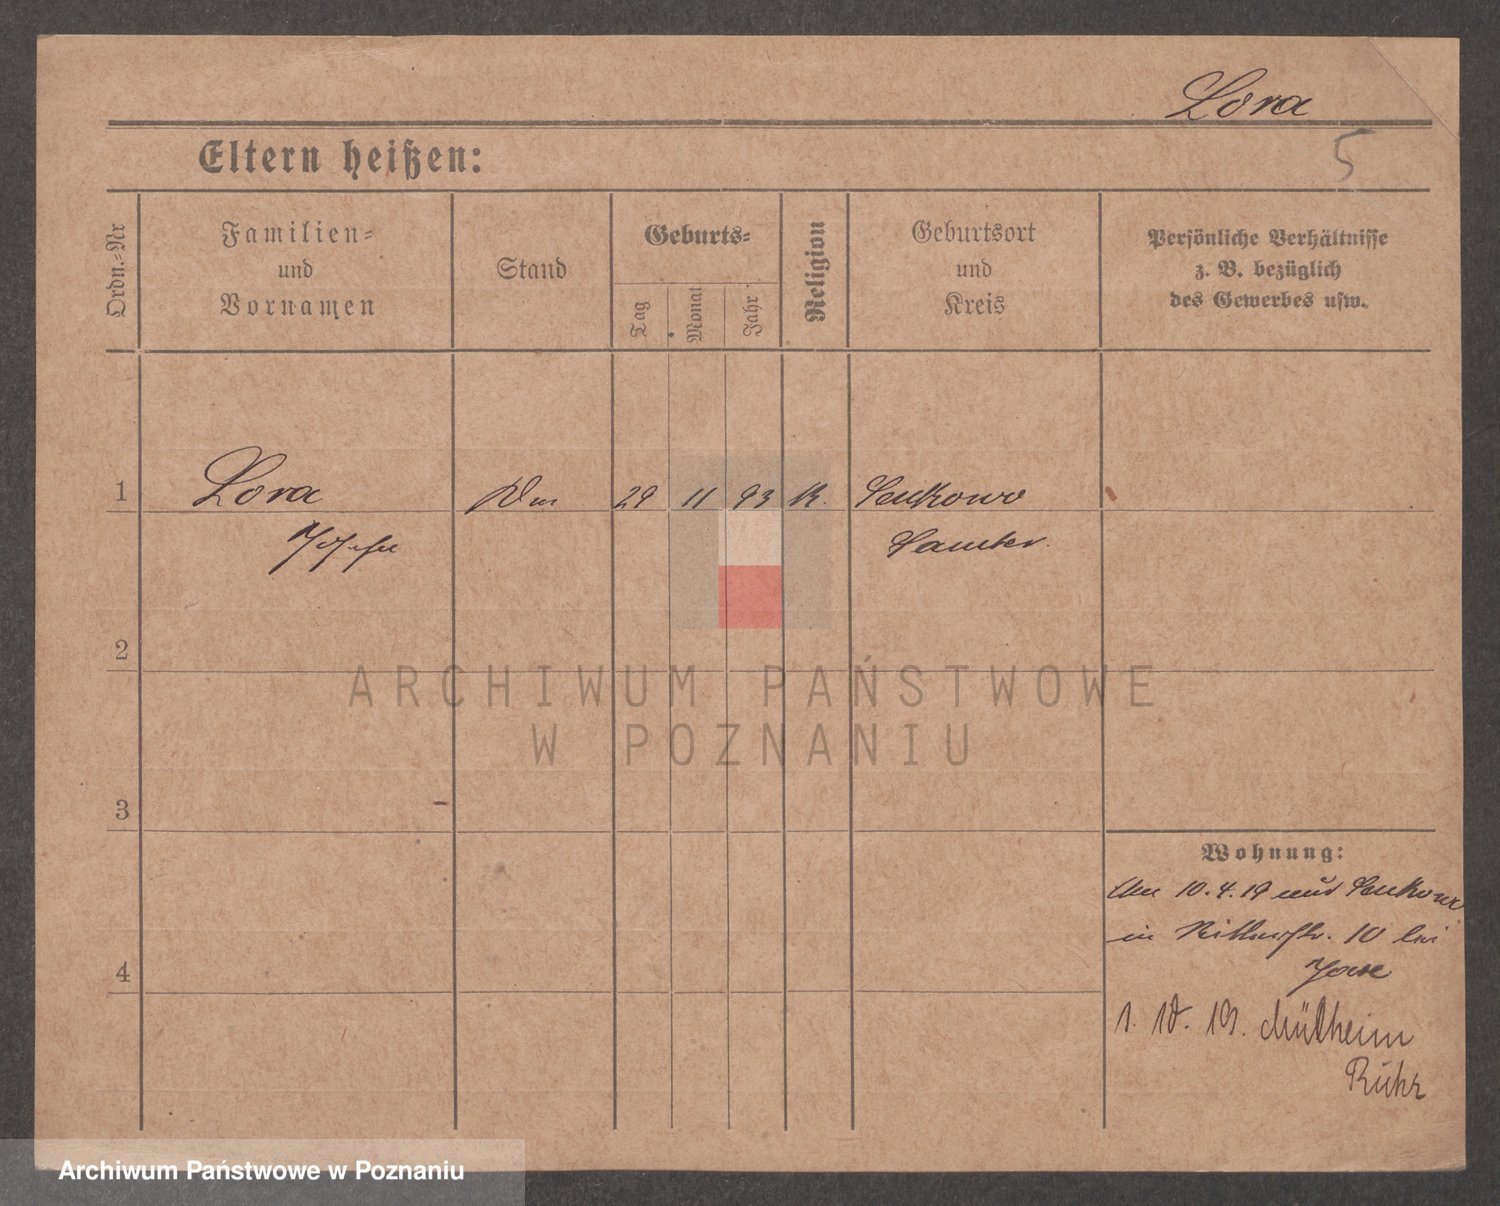 Lora
5
Eltern heißen:
Ordn.-Nr
Familien-
und
Vornamen
Stand
Geburts-
Tag
Monat
Jahr
Religion
Geburtsort
und
Kreis
Persönliche Verhältnisse
z. B. bezüglich
des Gewerbes usw.
1
Lora
29 11 93 K.
Senkowo
Samter.
2
ARCHIWUM PAŃSTWOWE
W POZNANIU
3
Wohnung:
10.4.19 aus Senkowo
in Ritterstr. 10 bei
4
1. 10. 19. Mülheim
Ruhr
Archiwum Państwowe w Poznaniu